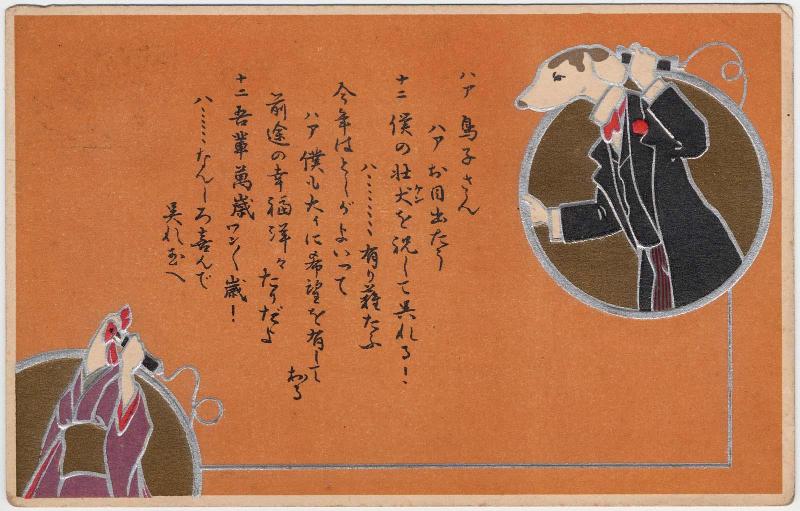 ハア 鳥子さん
ハア お目出たう
十二 僕の壮犬を祝して呉れる!
ケン
ハ……… 有り難たふ
今年はとしがよいつて
ハア 僕も大イに希望を有して
おる
前途の幸福洋々たりだよ
十二 吾輩萬歳ワン〱歳!
ハ……なんしろ喜んで
呉れ玉へ